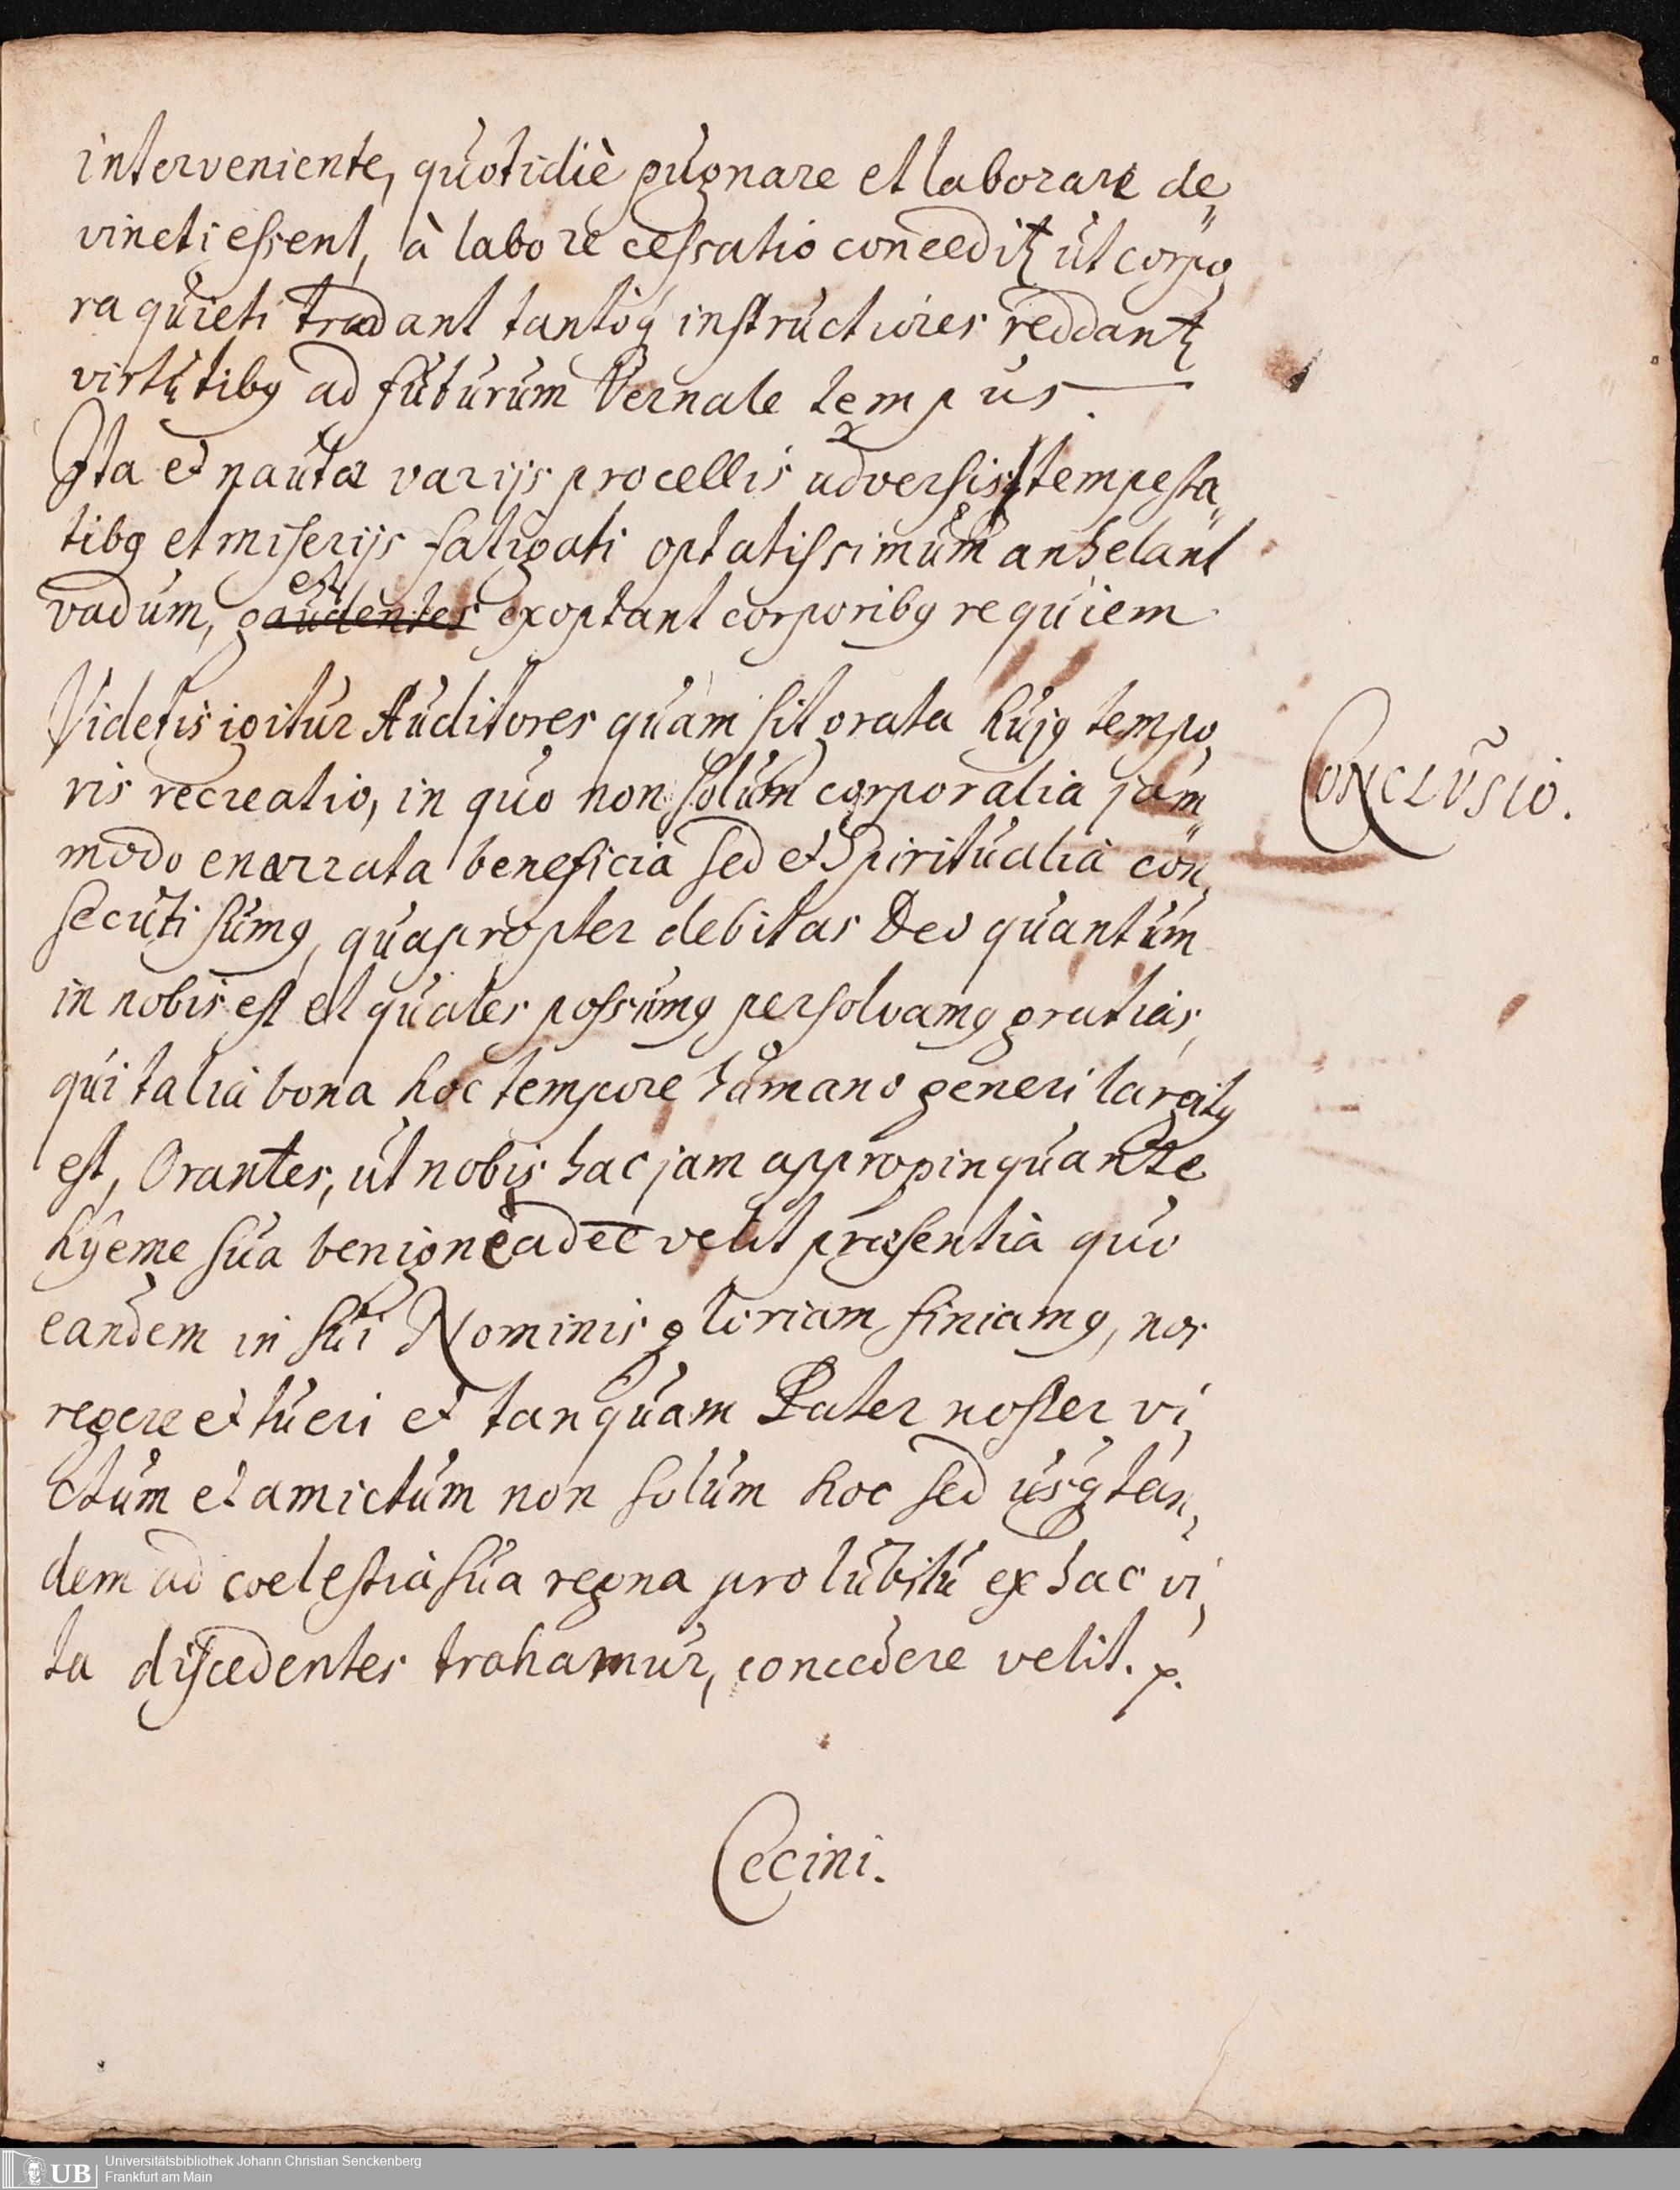 interveniente, quotidiè pugnare et laborare de„
vincti essent, à labore cessatio conceditꝛ ut corpo„
ra quieti tradant tantoq; instructiores reddantꝛ
virtutibꝰ ad futurum Vernale tempus.
Ita et nautæ varijs procellis adversisq; tempesta„
tibꝰ et miserijs fatigati optatissimum anhelant
vadum, et
gaudentes exoptant corporibꝰ requiem.
Videtis igitur Auditores quàm sit grata hujꝰ tempo„
ris recreatio, in quo non solum corporalia jam„
modo enarrata beneficia sed et Spiritualia con„
secuti sumꝰ, quapropter debitas Deo quantum
in nobis est et quales possumꝰ persolvamꝰ gratias,
qui talia bona hoc tempore humano generi largitꝰ
est, Orantes, ut nobis hac jam appropinquante
hÿeme sua benignè adeē velit præsentià quo
eandem in sui Nominis gloriam finiamꝰ, nos
regere et tueri et tanquam Pater noster vi„
ctum et amictum non solum hoc sed usq; tan„
dem ad coelestia sua regna pro lubitu ex hac vi„
ta discedentes trahamur, concedere velit.
CONCLVSIO.
Cecini.
UB
Universitätsbibliothek Johann Christian Senckenberg
Frankfurt am Main